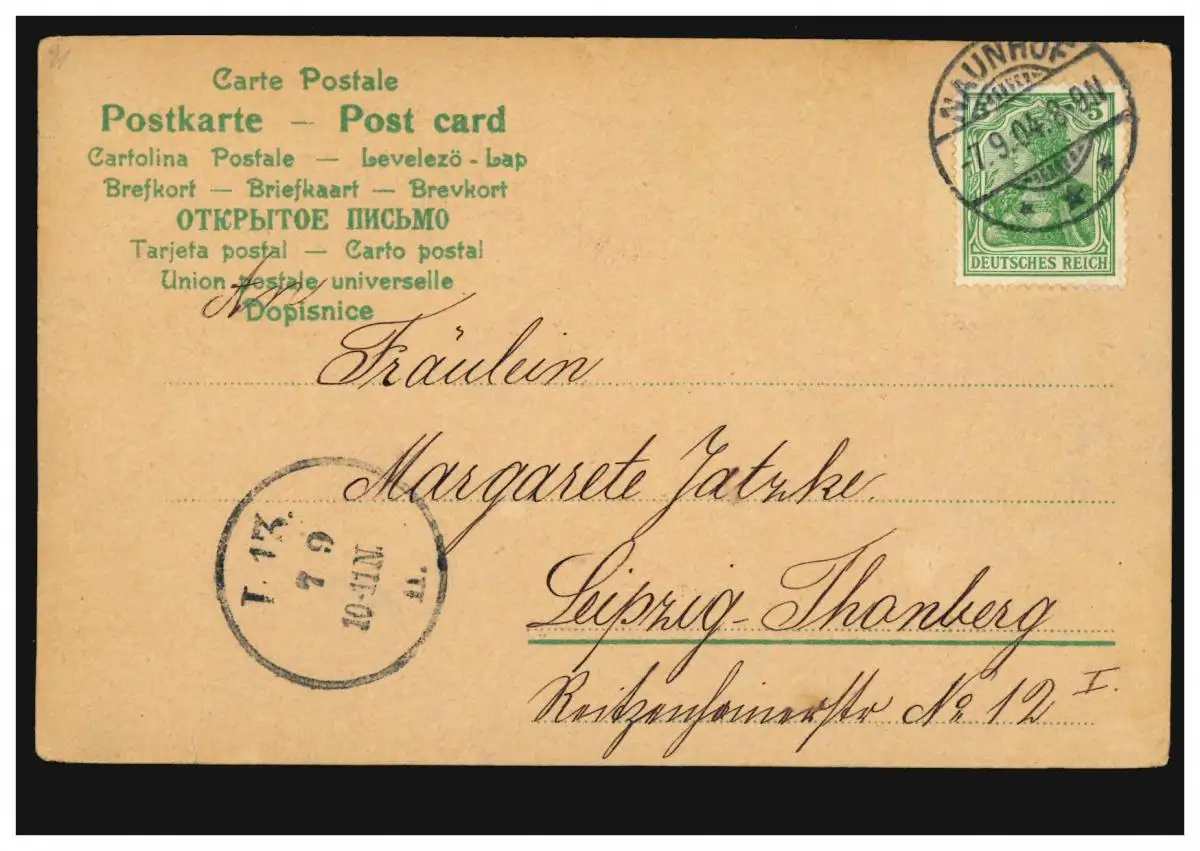 Carte Postale
Postkarte — Post card
Cartolina Postale — Levelező - Lap
Brefkort — Briefkaart — Brevkort
ОТКРЫТОЕ ПИСЬМО
Tarjeta postal — Carto postal
Union postale universelle
Dopisnice
NAUNHOF
-7.9.04.8-9N
5 5
DEUTSCHES REICH
An
Fräulein
Margarete Jatzke.
Leipzig-Thonberg
Reitzenhainerstr No 12 I.
7 9
10-11N.
II.